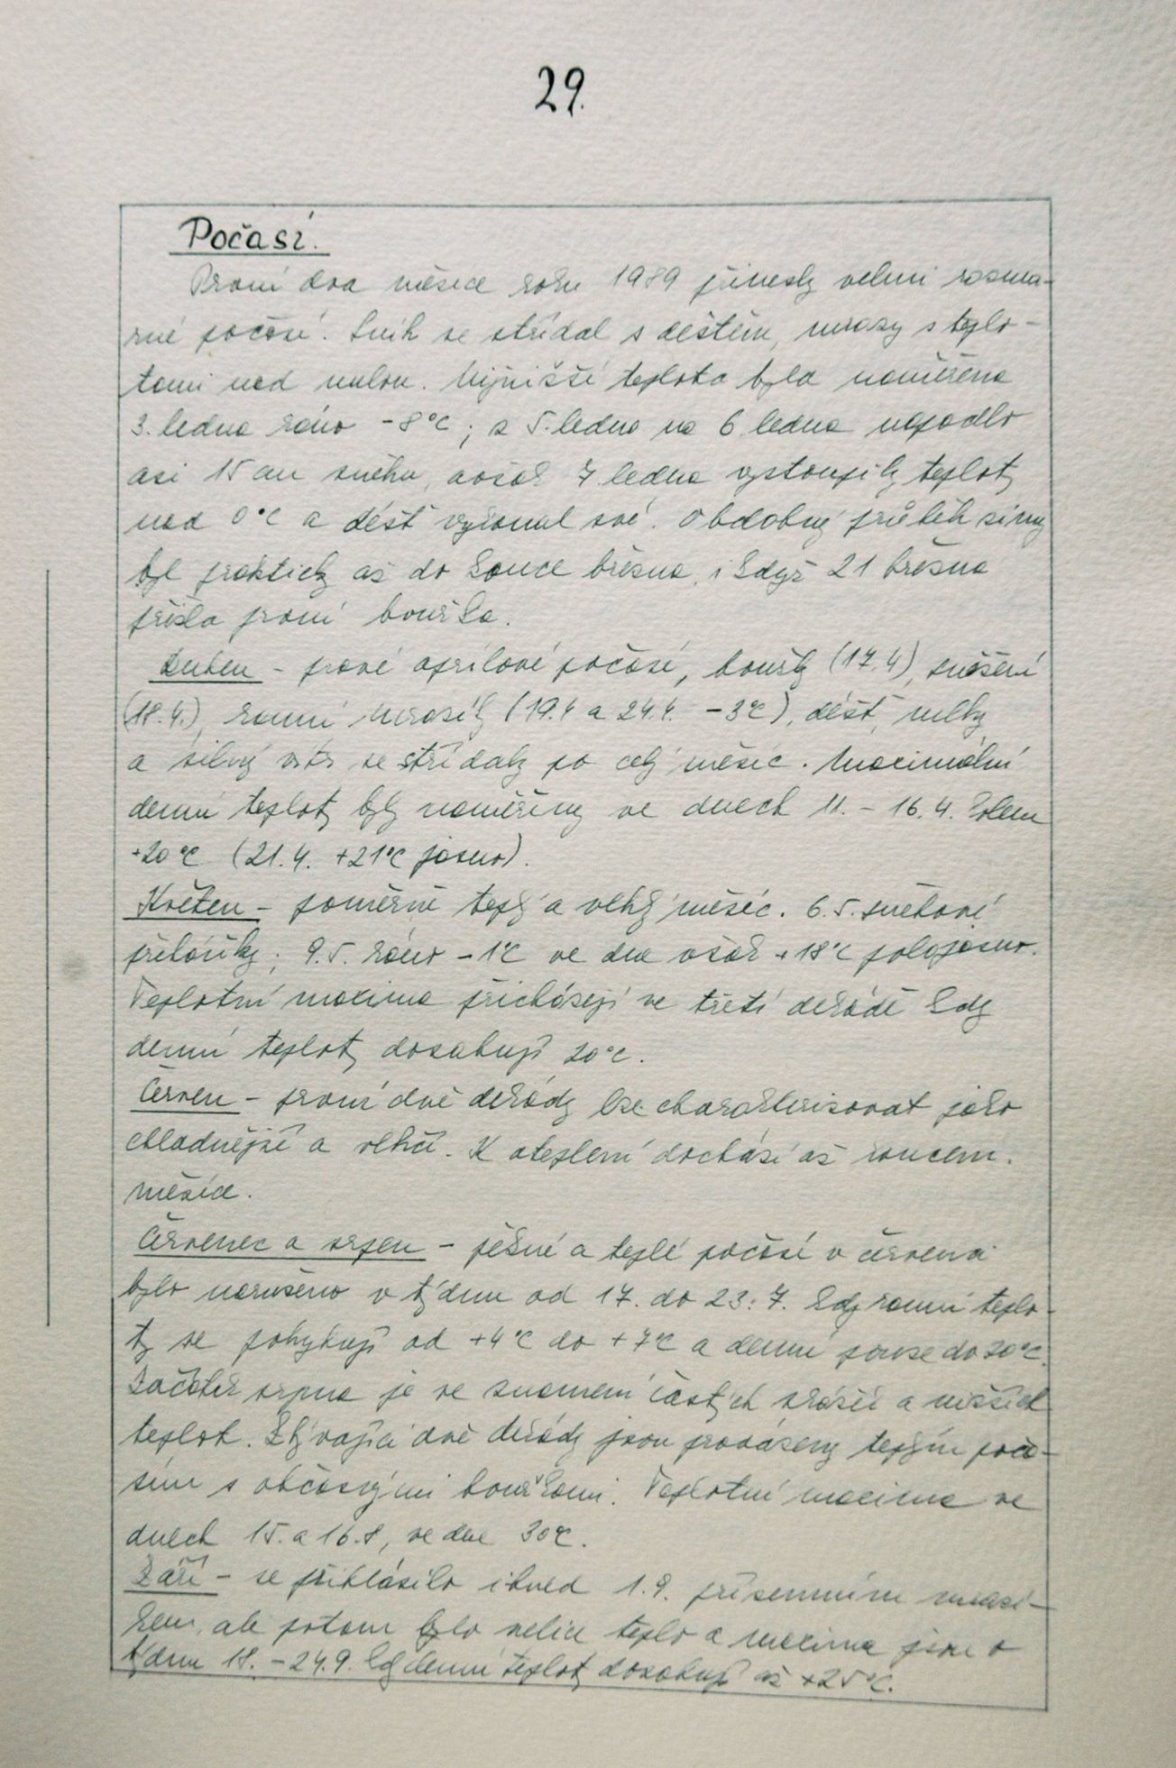 29.
Počasí.
První dva měsíce roku 1989 přinesly velmi rozma-
rné počasí. Sníh se střídal s deštěm, mrazy s teplo-
tami nad nulou. Nejnižší teplota byla naměřena
3. ledna ráno -8°C; z 5. ledna na 6 ledna napadlo
asi 15 cm sněhu, avšak 7 ledna vystoupily teploty
nad 0°C a déšť vykonal své. Obdobný průběh zimy
byl prakticky až do konce března, i když 21 března
přišla první bouřka.
Duben - pravé aprílové počasí, bouřky (17.4), sněžení
(18.4.), ranní mrazíky (19.4 a 24.4. -3°C), déšť, mlhy
a silný vítr se střídaly po celý měsíc. Maximální
denní teploty byly naměřeny ve dnech 11. - 16.4. kolem
+20°C (21.4. +21°C jasno).
Květen - poměrně teplý a vlhký měsíc. 6.5. sněhové
přeháňky; 9.5. ráno -1°C ve dne však +18°C polojasno.
Teplotní maxima přicházejí ve třetí dekádě kdy
denní teploty dosahují 20°C.
Červen - první dvě dekády lze charakterizovat jako
chladnější a vlhčí. K oteplení dochází až koncem.
měsíce.
Červenec a srpen - pěkné a teplé počasí v červenci
bylo narušeno v týdnu od 17. do 23.7. kdy ranní teplo-
ty se pohybují od +4°C do +7°C a denní pouze do 20°C.
Začátek srpna je ve znamení častých srážek a nižších
teplot. Zbývající dvě dekády jsou provázeny teplým poča-
sím s občasnými bouřkami. Teplotní maxima ve
dnech 15. a 16.8, ve dne 30°C.
Září - se přihlásilo ihned 1.9. přízemním mrazí-
kem, ale potom bylo velice teplo a maxima jsou v
týdnu 18. - 24.9. kdy denní teploty dosahují až +25°C.